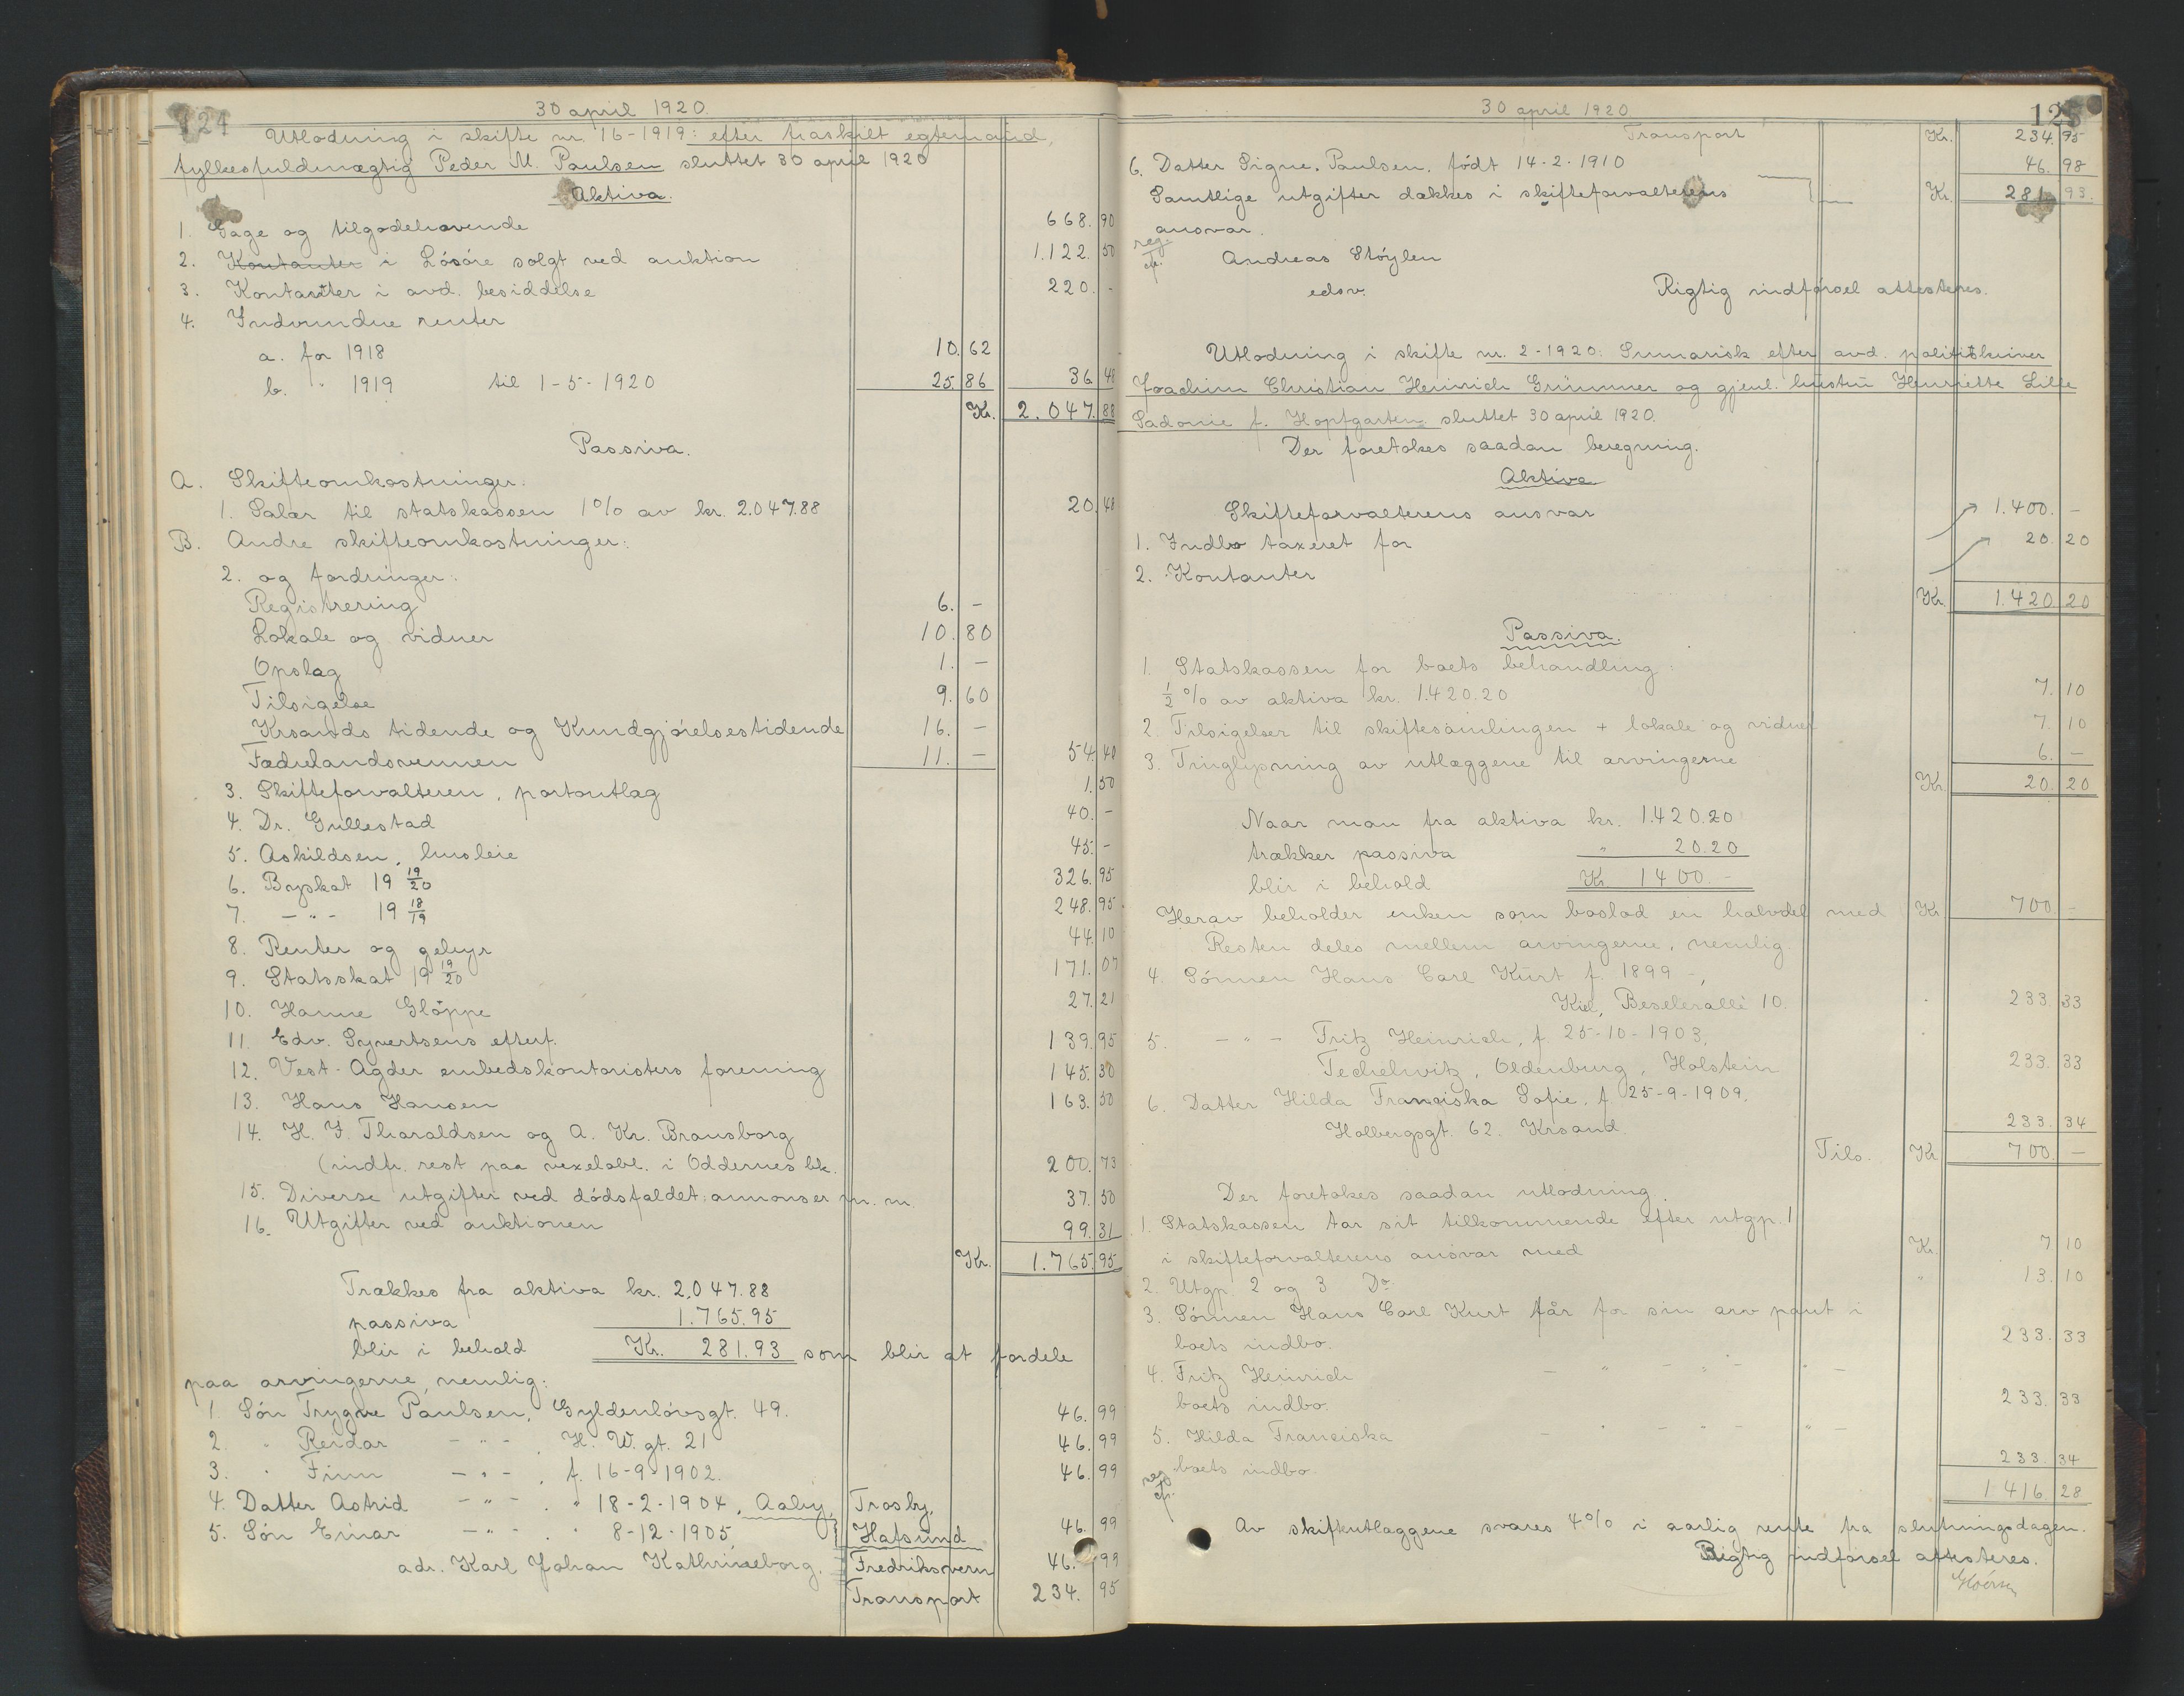 124
30 april 1920.
Utlodning i skifte nr. 16-1919: efter fraskilt egtemand,
fylkesfuldmægtig Peder M. Paulsen sluttet 30 april 1920
Aktiva.
1. Gage og tilgodehavende 668.90
2. Kontanter i Lösöre solgt ved auktion 1.122.50
3. Kontanter i avd. besiddelse 220.-
4. Indvundne renter
a. for 1918 10.62
b. " 1919 til 1-5-1920 25.86 36.48
Kr. 2.047.88
Passiva.
A. Skifteomkostninger:
1. Salær til statskassen 1% av kr. 2.047.88 20.48
B. Andre skifteomkostninger:
2. og fordringer:
Registrering 6.-
Lokale og vidner 10.80
Opslag 1.-
Tilsigelse 9.60
Krsands tidende og Kundgjörelsestidende 16.-
Fædrelandsvennen 11.- 54.40
3. Skifteforvalteren, portoutlag 1.50
4. Dr. Gullestad 40.-
5. Askildsen, husleie 45.-
6. Byskat 19 19/20 326.95
7. -"- 19 18/19 248.95
8. Renter og gebyr 44.10
9. Statsskat 19 19/20 171.07
10. Hanne Glöppe 27.21
11. Edv. Syvertsens efterf. 139.95
12. Vest-Agder embedskontoristers forening 145.30
13. Hans Hansen 163.50
14. H. J. Tharaldsen og A. Kr. Brausborg
(indfr. rest paa vexelobl. i Oddernes bk. 200.73
15. Diverse utgifter ved dödsfaldet: annonser m. m. 37.50
16. Utgifter ved auktionen 99.31
Kr. 1.765.95
Trækkes fra aktiva kr. 2.047.88
passiva 1.765.95
blir i behold Kr. 281.93 som blir at fordele
paa arvingerne, nemlig:
1. Sön Trygve Paulsen, Gyldenlövsgt. 49. 46.99
2. " Reidar -"-, H. W. gt. 21 46.99
3. " Finn -"-, f. 16-9-1902. 46.99
4. Datter Astrid -"-, " 18-2-1904, Aaby, Trosby, 46.99
5. Sön Einar -"-, " 8-12-1905, Hafsund
adr. Karl Johan Kathrineborg. Fredriksvern 46.99
Transport 234.95
125
30 april 1920
Transport Kr. 234.95
6. Datter Signe Paulsen, födt 14-2-1910 46.98
Samtlige utgifter dækkes i skifteforvalterens Kr. 281.93.
ansvar.
reg.
Andreas Stöylen
edsv. Rigtig indförsel attesteres.
Utlodning i skifte nr. 2-1920: Sumarisk efter avd.
Joachim Christian Heinrich Grümmer og gjenl. hustru Henriette Lille
Sadonie f. Hopfgarten sluttet 30 april 1920.
Der foretokes saadan beregning.
Aktiva
Skifteforvalterens ansvar 1.400.-
1. Indbo taxeret for 20.20
2. Kontanter
Kr. 1.420.20
Passiva.
1. Statskassen for boets behandling:
1/2 % av aktiva kr. 1.420.20 7.10
2. Tilsigelser til skiftesamlingen + lokale og vidner 7.10
3. Tinglysning av utlæggene til arvingerne 6.-
Kr. 20.20
Naar man fra aktiva kr. 1.420.20
trækker passiva " 20.20
blir i behold Kr 1400.-
Herav beholder enken som boslod en halvdel med Kr 700.-
Resten deles mellem arvingerne, nemlig.
4. Sönnen Hans Carl Kurt f. 1899 -,
Kiel, Beselerallé 10. 233.33
5. -"- Fritz Heinrich, f. 25-10-1903,
Techelwitz, Oldenburg, Holstein 233.33
6. Datter Hilda Franciska Sofie, f 25-9-1909,
Holbergsgt. 62. Krsand. 233.34
Tils. Kr 700.-
Der foretokes saadan utlodning.
1. Statskassen tar sit tilkommende efter utgp. 1
i skifteforvalterens ansvar med Kr. 7.10
2. Utgp. 2 og 3 Do. " 13.10
3. Sönnen Hans Carl Kurt får for sin arv pant i
boets indbo. 233.33
4. Fritz Heinrich - " - " - " -
boets indbo. 233.33
5. Hilda Franciska - " - " - " -
boets indbo. 233.34
reg
1416.28
Av skifteutlæggene svares 4% i aarlig rente fra slutningsdagen.
Rigtig indförsel attesteres.